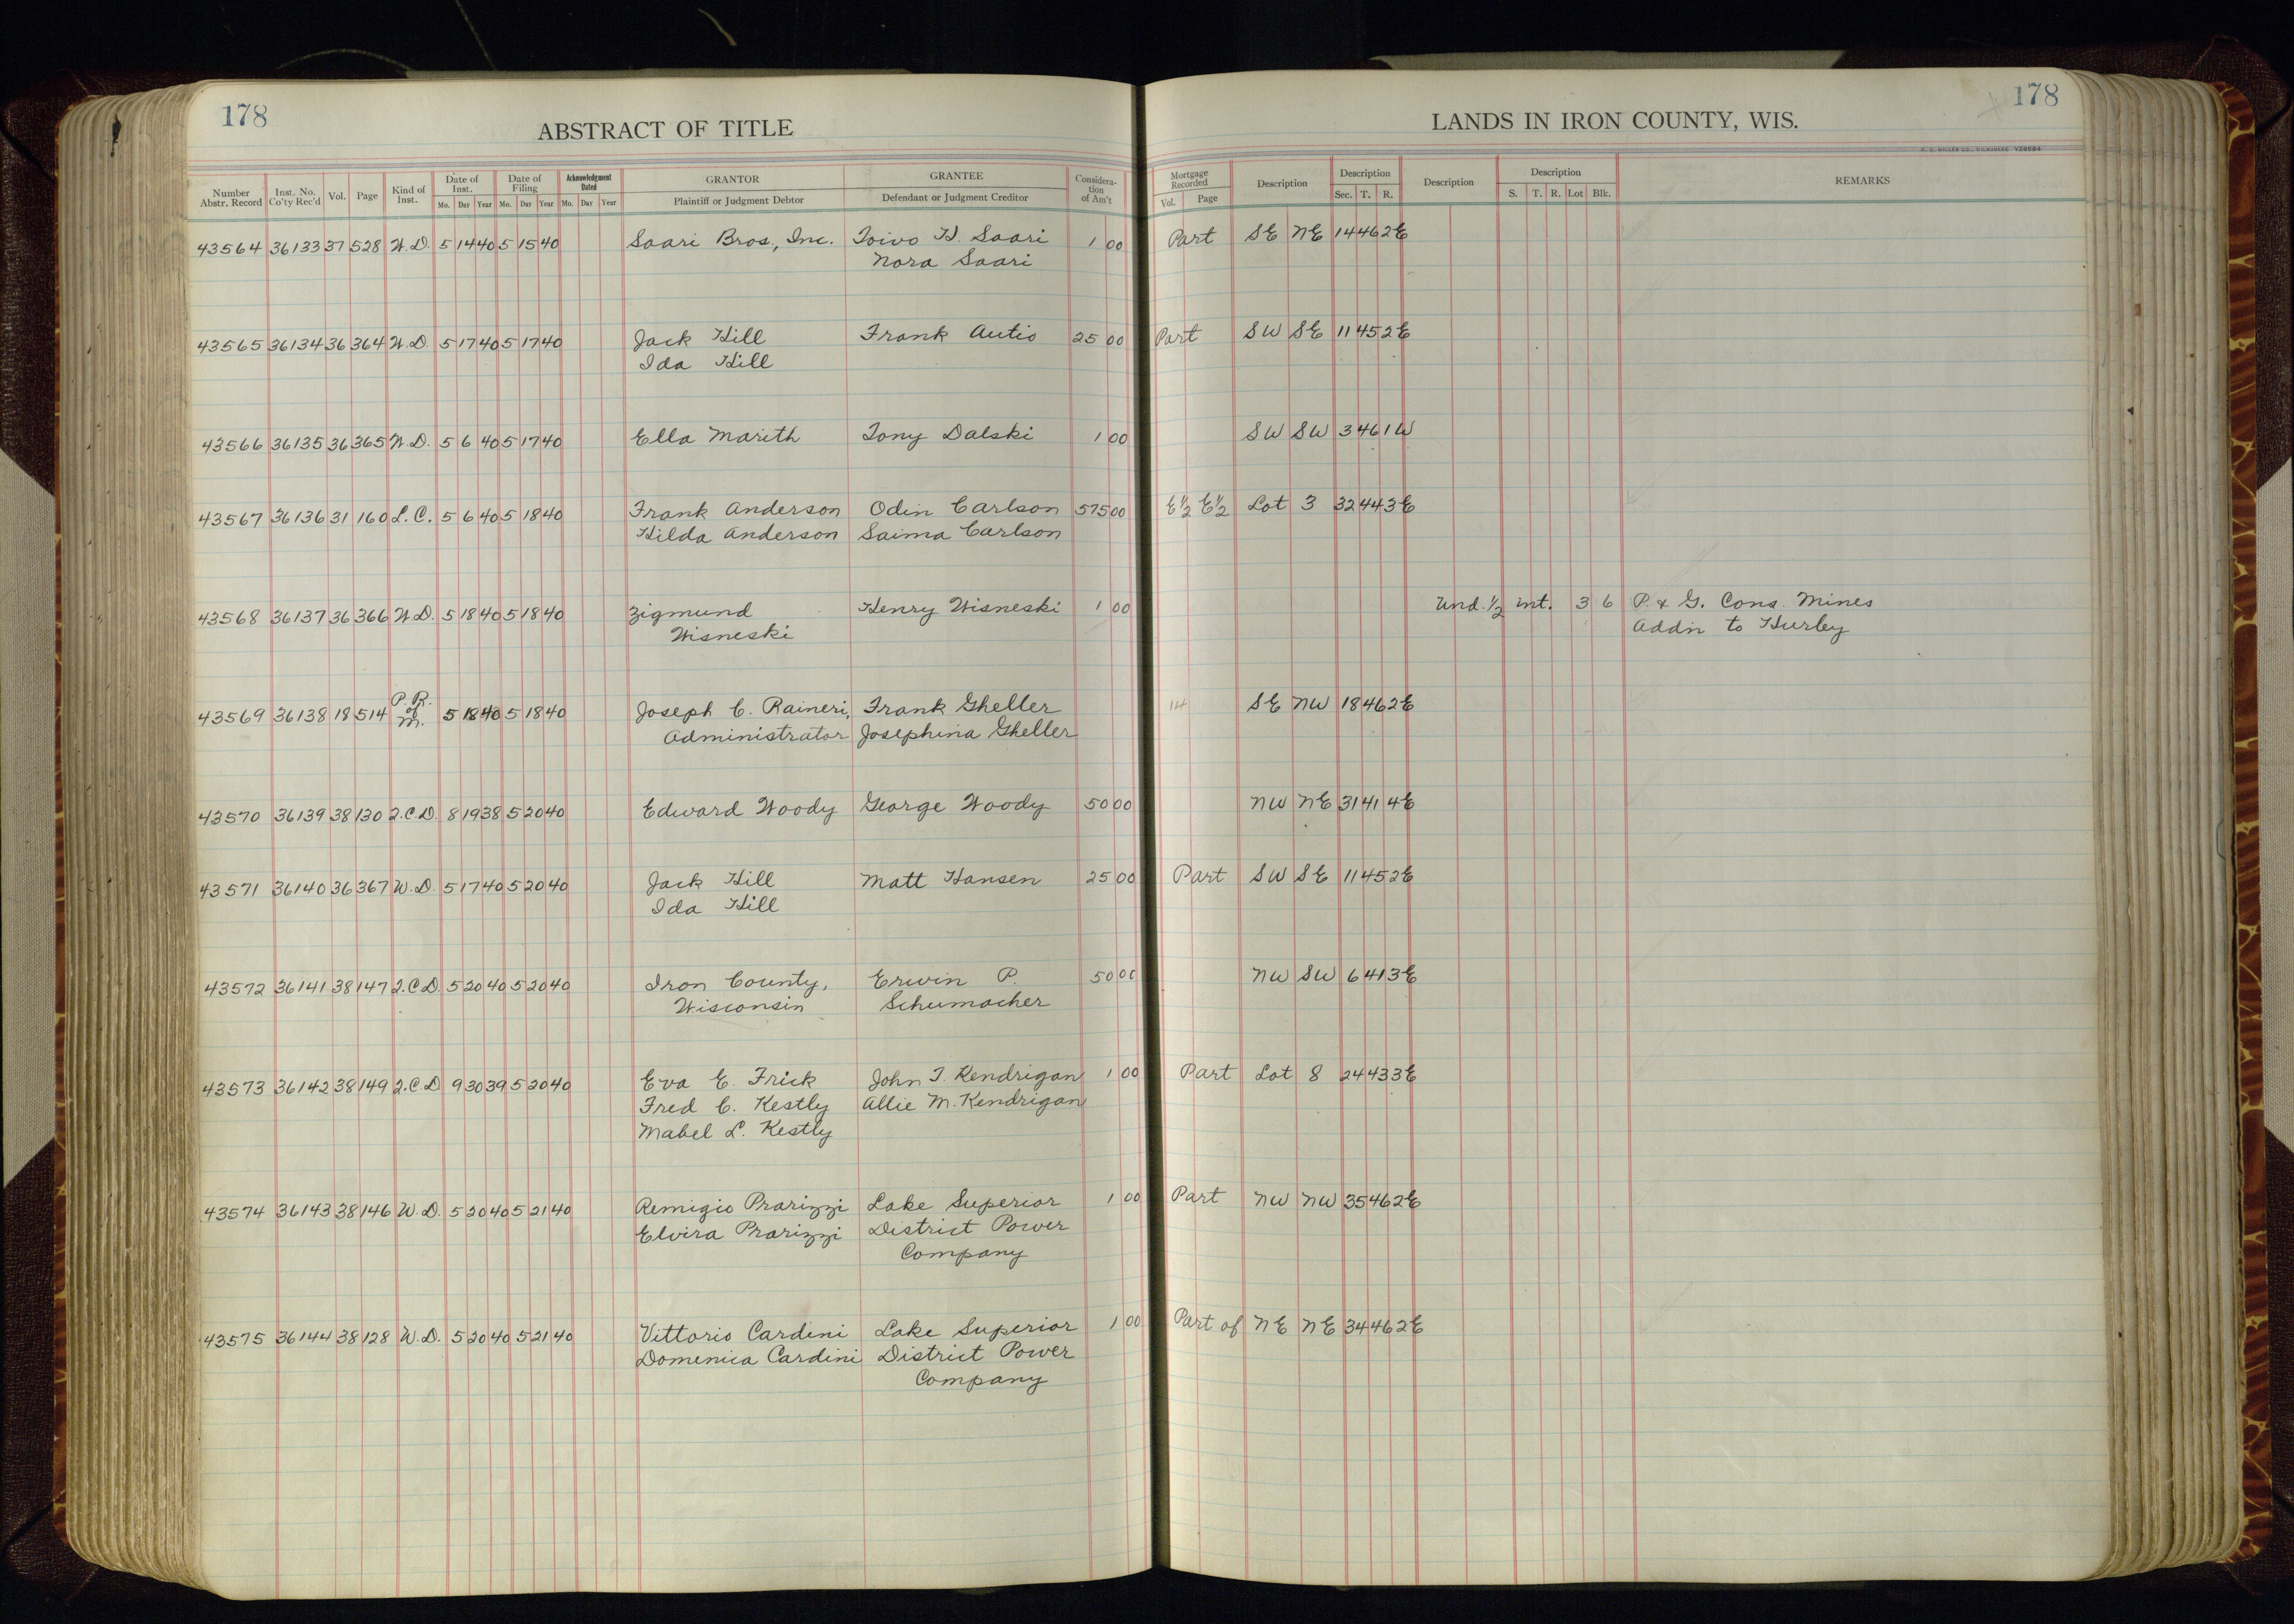 178
ABSTRACT OF TITLE
LANDS IN IRON COUNTY, WIS.
178
Number Abstr. Record Inst. No. Co'ty Rec'd Vol. Page Kind of Inst. Date of Inst. Mo. Day Year Date of Filing Mo. Day Year Acknowledgment Dated Mo. Day Year GRANTOR Plaintiff or Judgment Debtor GRANTEE Defendant or Judgment Creditor Considera-tion of Am't Mortgage Recorded Vol. Page Description Description Sec. T. R. Description Description S. T. R. Lot Blk. REMARKS
43564 36133 37 528 W.D. 5 14 40 5 15 40 Saari Bros., Inc. Toivo H. Saari 1 00 Part SE NE 14 46 2E
Nora Saari
43565 36134 36 364 W.D. 5 17 40 5 17 40 Jack Hill Frank Autio 25 00 Part SW SE 11 45 2E
Ida Hill
43566 36135 36 365 W.D. 5 6 40 5 17 40 Ella Marith Tony Dalski 1 00 SW SW 3 46 1W
43567 36136 31 160 L.C. 5 6 40 5 18 40 Frank Anderson Odin Carlson 575 00 E½ E½ Lot 3 32 44 3E
Hilda Anderson Saima Carlson
43568 36137 36 366 W.D. 5 18 40 5 18 40 Zigmund Henry Wisneski 1 00 Und. ½ int. 3 6 P. & G. Cons. Mines
Wisneski Addn to Hurley
43569 36138 18 514 P.R. of M. 5 18 40 5 18 40 Joseph C. Raineri, Frank Gheller 14 SE NW 18 46 2E
Administrator Josephina Gheller
43570 36139 38 130 2.C.D. 8 19 38 5 20 40 Edward Woody George Woody 50 00 NW NE 31 41 4E
43571 36140 36 367 W.D. 5 17 40 5 20 40 Jack Hill Matt Hansen 25 00 Part SW SE 11 45 2E
Ida Hill
43572 36141 38 147 2.C.D. 5 20 40 5 20 40 Iron County, Erwin P. 50 00 NW SW 6 41 3E
Wisconsin Schumacher
43573 36142 38 149 2.C.D 9 30 39 5 20 40 Eva E. Frick John T. Kendrigan 1 00 Part Lot 8 24 43 3E
Fred C. Kestly Allie M. Kendrigan
Mabel L. Kestly
43574 36143 38 146 W.D. 5 20 40 5 21 40 Remigio Prarizzi Lake Superior 1 00 Part NW NW 35 46 2E
Elvira Prarizzi District Power
Company
43575 36144 38 128 W.D. 5 20 40 5 21 40 Vittorio Cardini Lake Superior 1 00 Part of NE NE 34 46 2E
Domenica Cardini District Power
Company